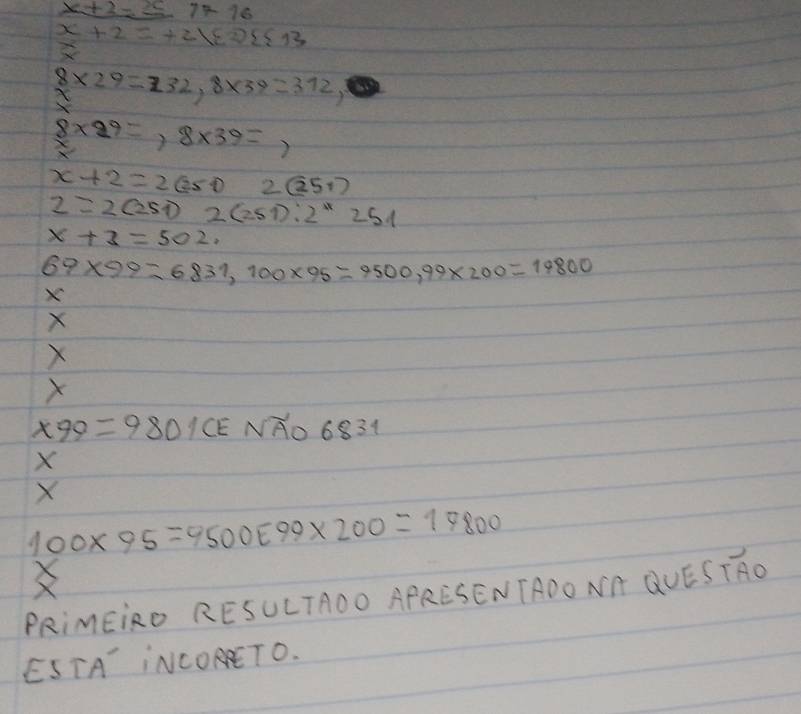 x+2=25 17 16
x + 2 = +2
x
8×29=232, 8×39=312,
x
x
8×29= , 8×39= ,
x
x
x+2=2(251) 2(251)
2=2(251) 2(251):2" 251
x+2=502.
69×99=6831, 100×95=9500, 99×200=19800
x
x
x
x
x99=9801(E NÃO 6831
x
x
100×95=9500E99×200=19800
x
x
PRIMEIRO RESULTADO APRESENTADO NA QUESTÃO
ESTÁ INCORRETO.